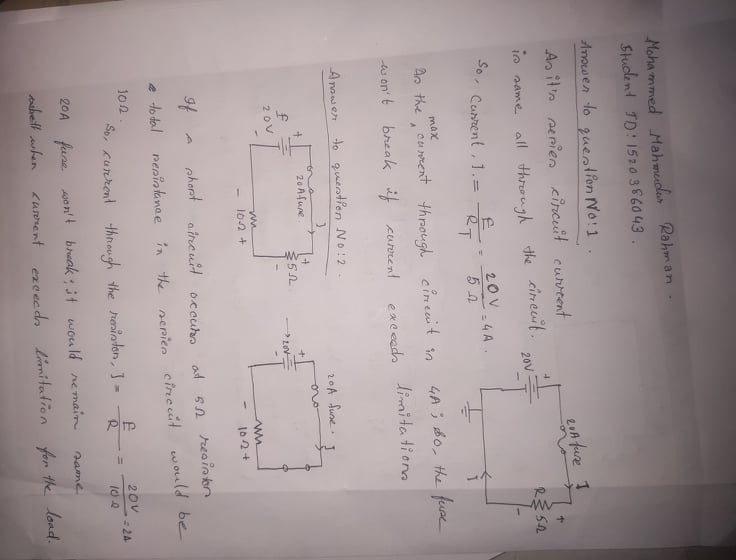 Mohammed Mahmudur Rahman.
Student ID: 1520386043.
Answer to question No: 1.
As it's series circuit current
is same all through the circuit.
20V
+
-
20A fuse
I
+
R 5Ω
-
I
So, Current, I = E/R_T = 20V/5Ω = 4A.
As the max current through circuit is 4A; so, the fuse
won't break if current exceeds limitations
Answer to question No: 2.
E
20V
+
-
20A fuse.
I
+
5Ω
-
- 10Ω +
→20V
+
-
20A fuse.
I
- 10Ω +
If a short circuit occurs at 5Ω resistor
total resistance in the series circuit would be
10Ω.
So, current through the resistor, I = E/R = 20V/10Ω = 2A
20A fuse won't break; it would remain same
when current exceeds limitation for the load.